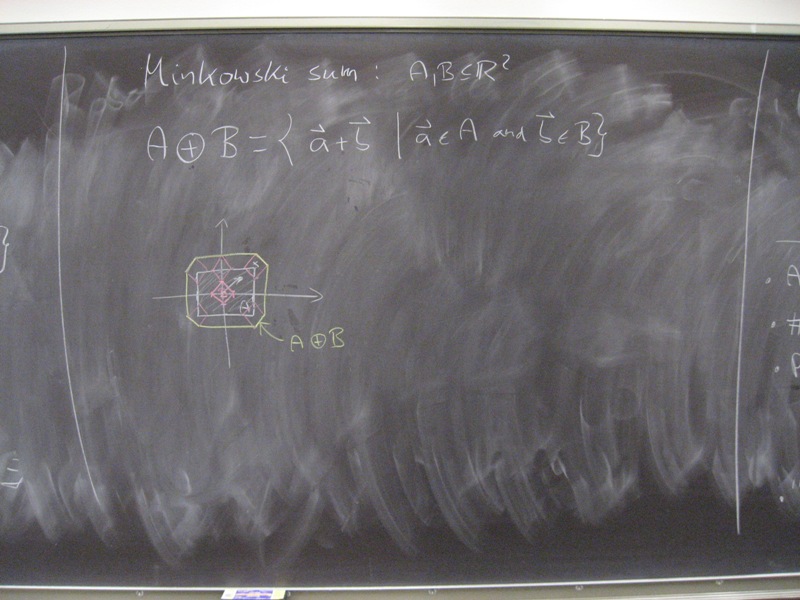 Minkowski sum: A,B⊆ℝ²
A ⊕ B = { a⃗ + b⃗ | a⃗ ∈ A and b⃗ ∈ B}
}
A
A
A ⊕ B
• A
• #
• P